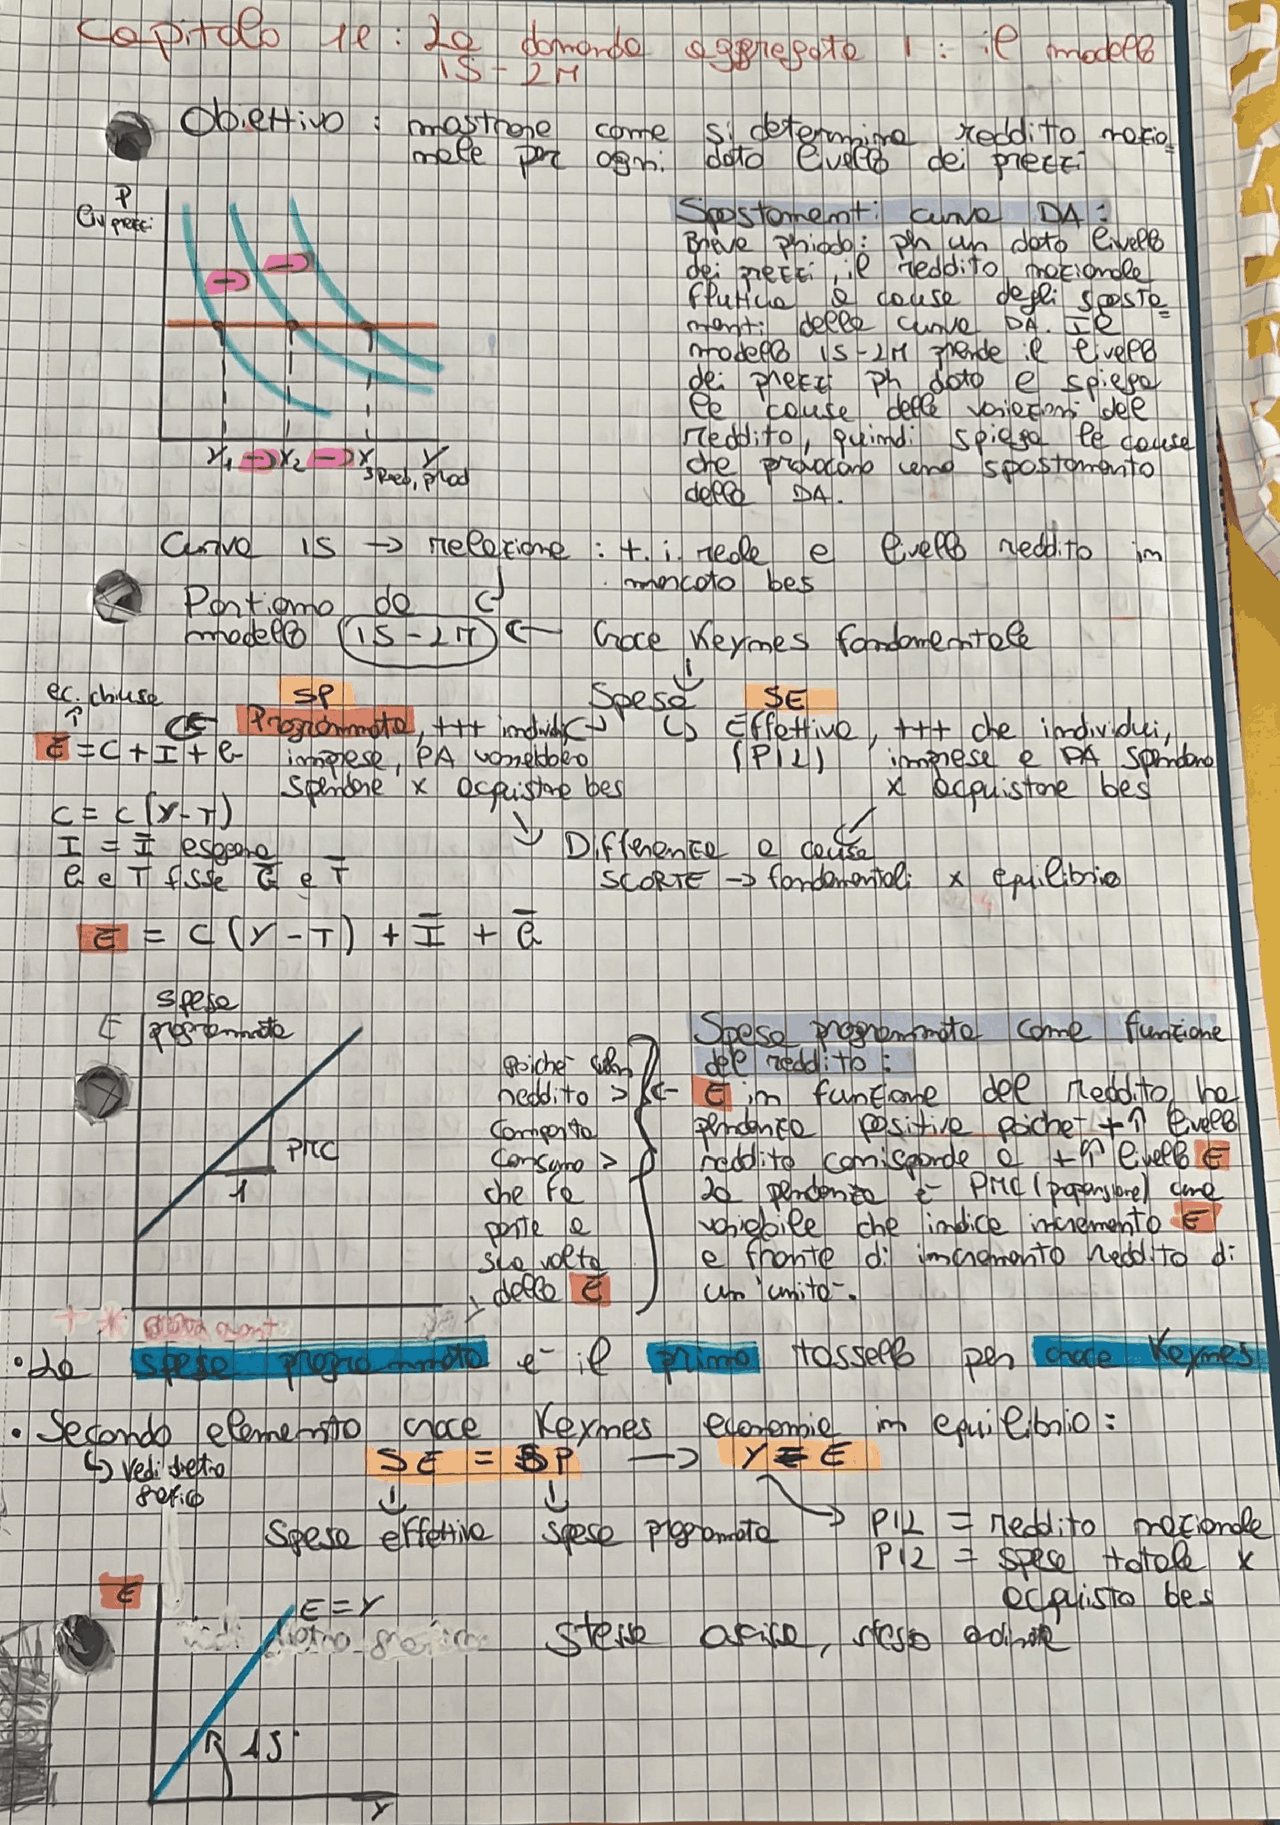 Capitolo 11: La domanda aggregata 1: il modello
IS-LM
Obiettivo: mostrare come si determina reddito nazio=
nale per ogni dato livello dei prezzi
P
liv prezzi
Y1 → Y2 → Y3 Y
Red, prod
Spostamenti curva DA:
Breve phiodo: ph un dato livello
dei prezzi, il reddito nazionale
fluttua a causa degli sposta=
menti della curva DA. Il
modello IS-LM prende il livello
dei prezzi ph dato e spiega
le cause delle variazioni del
reddito, quindi spiega le cause
che provocano uno spostamento
della DA.
Curva IS → relazione: t. i. reale e livello reddito in
mercato bes
Partiamo da
modello IS-LM ← Croce Keynes fondamentale
Spesa
ec. chiusa
E = C + I + G
SP
Programmata, +++ individui
imprese, PA vorrebbero
spendere x acquistare bes
SE
Effettiva, +++ che individui,
(PIL) imprese e PA spendono
x acquistare bes
C = C (Y-T)
I = Ī esogena
G e T fisse Ḡ e T̄
Differenza a causa
SCORTE → fondamentali x equilibrio
E = C (Y - T) + Ī + Ḡ
E spesa
programmata
PMC
1
poiché
reddito >
comporta
consumo >
che fa
parte a
sua volta
della E
Spesa programmata come funzione
del reddito:
← E in funzione del reddito ha
pendenza positiva poiché +↑ livello
reddito corrisponde a +↑ livello E
La pendenza è PMC (propensione) come
variabile che indica incremento E
a fronte di incremento reddito di
un'unità.
• La spesa programmata è il primo tassello per croce Keynes
• Secondo elemento croce Keynes economia in equilibrio:
↳ vedi dietro
grafico
SE = SP → Y = E
Spesa effettiva spesa programmata
PIL = reddito nazionale
PIL = spesa totale x
acquisto bes
E
E = Y
stessa ascissa, stessa ordinata
45°
Y